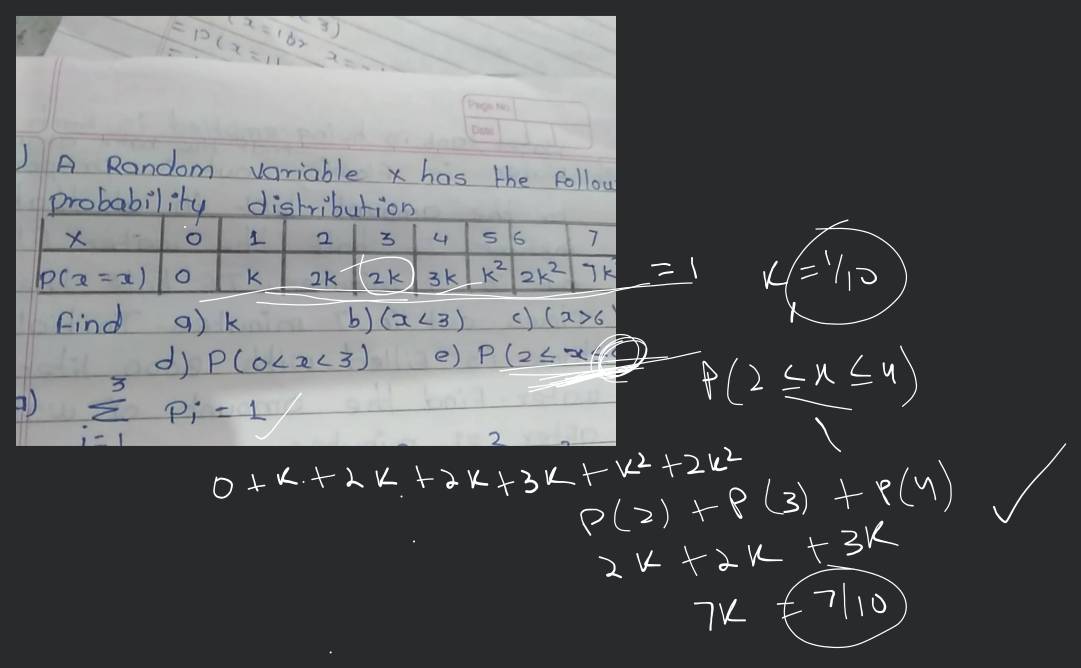 Page No
Date
A Random variable x has the follow
probability distribution
X 0 1 2 3 4 5 6 7
P(x = x) 0 k 2k 2k 3k k² 2k² 7k
= 1
K = 1/10
find a) k b) (x < 3) c) (x > 6
d) P(0 < x < 3) e) P(2 ≤ x
P(2 ≤ x ≤ 4)
a) 3 Σ i = 1 Pi = 1
0 + K + 2K + 2K + 3K + K² + 2K²
P(2) + P(3) + P(4)
2K + 2K + 3K
7K = 7/10